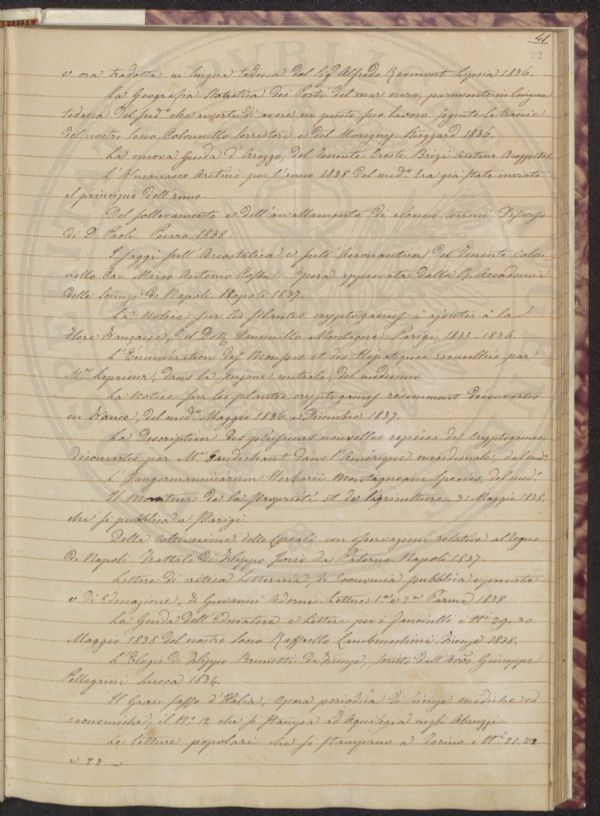 41
22
e ora tradotta in lingua tedesca dal Sig. Alfredo Lipsia 1836.
La Geografia Statistica dei Porti del mar nero, parimente in lingua
tedesca del med.° che avverte di avere in questo suo lavoro seguite le traccie
del nostro Socio Colonnello Serristori, e del Marigny. 1836.
La nuova Guida d'Arezzo, del Tenente Oreste Brizi Aretino. Arezzo 1838.
L'Almanacco Aretino per l'anno 1838 del med.° Era già stato inviato
al principio dell'anno.
Del sollevamento e dell'avvallamento di alcuni terreni. Discorso
di D. Paoli. Pesaro 1838.
Saggi sull'Areostatica e sull'Aeronautica del Tenente Colon
nello Cav. Marco Antonio Costa. Opera approvata dalla R. Accademia
delle Scienze di Napoli. Napoli 1837.
La Notice sur les Plantes cryptogames à ajouter à la
Flore Française, del Dott. Cammillo Montagne. Parigi 1833-1836.
L'Enumération des Mousses et des Hépatiques recueillies par
M.r Leprieur, dans la Guyane centrale, del medesimo.
La Notice sur les plantes cryptogames récemment découvertes
en France, del med.° Maggio 1836 e Dicembre 1837.
La Description des plusieurs nouvelles espèces de Cryptogames
découvertes par M.r Gaudichaud dans l'Amérique méridionale, del med.°
L' Jungermanniearum Herbarii Montagneani Species, del med.°
Il Moniteur de la Propriété et de l'agriculture, 31 Maggio 1838
che si pubblica a Parigi.
Della coltivazione delle Cereali con osservazioni relative al regno
di Napoli. Trattato di Filippo da Paterno. Napoli 1837.
Lettere di critica Letteraria, di Economia pubblica
e di Educazione, di Giovanni Adorni. Lettere 1.a e 2.a Parma 1838
La Guida dell'Educatore e Letture pei Fanciulli i N.i 29. e 30
Maggio 1838 del nostro Socio Raffaello Lambruschini. Firenze 1838.
L'Elogio di Filippo Brunetti di Firenze, scritto dall' Giuseppe
Pellegrini. Lucca 1834.
Il Gran Sasso d'Italia, opera periodica di scienze mediche ed
economiche, il N.° 12 che si stampa ad Aquila negli Abruzzi.
Le letture popolari che si stampano a Torino i N.i 21. 22
e 23